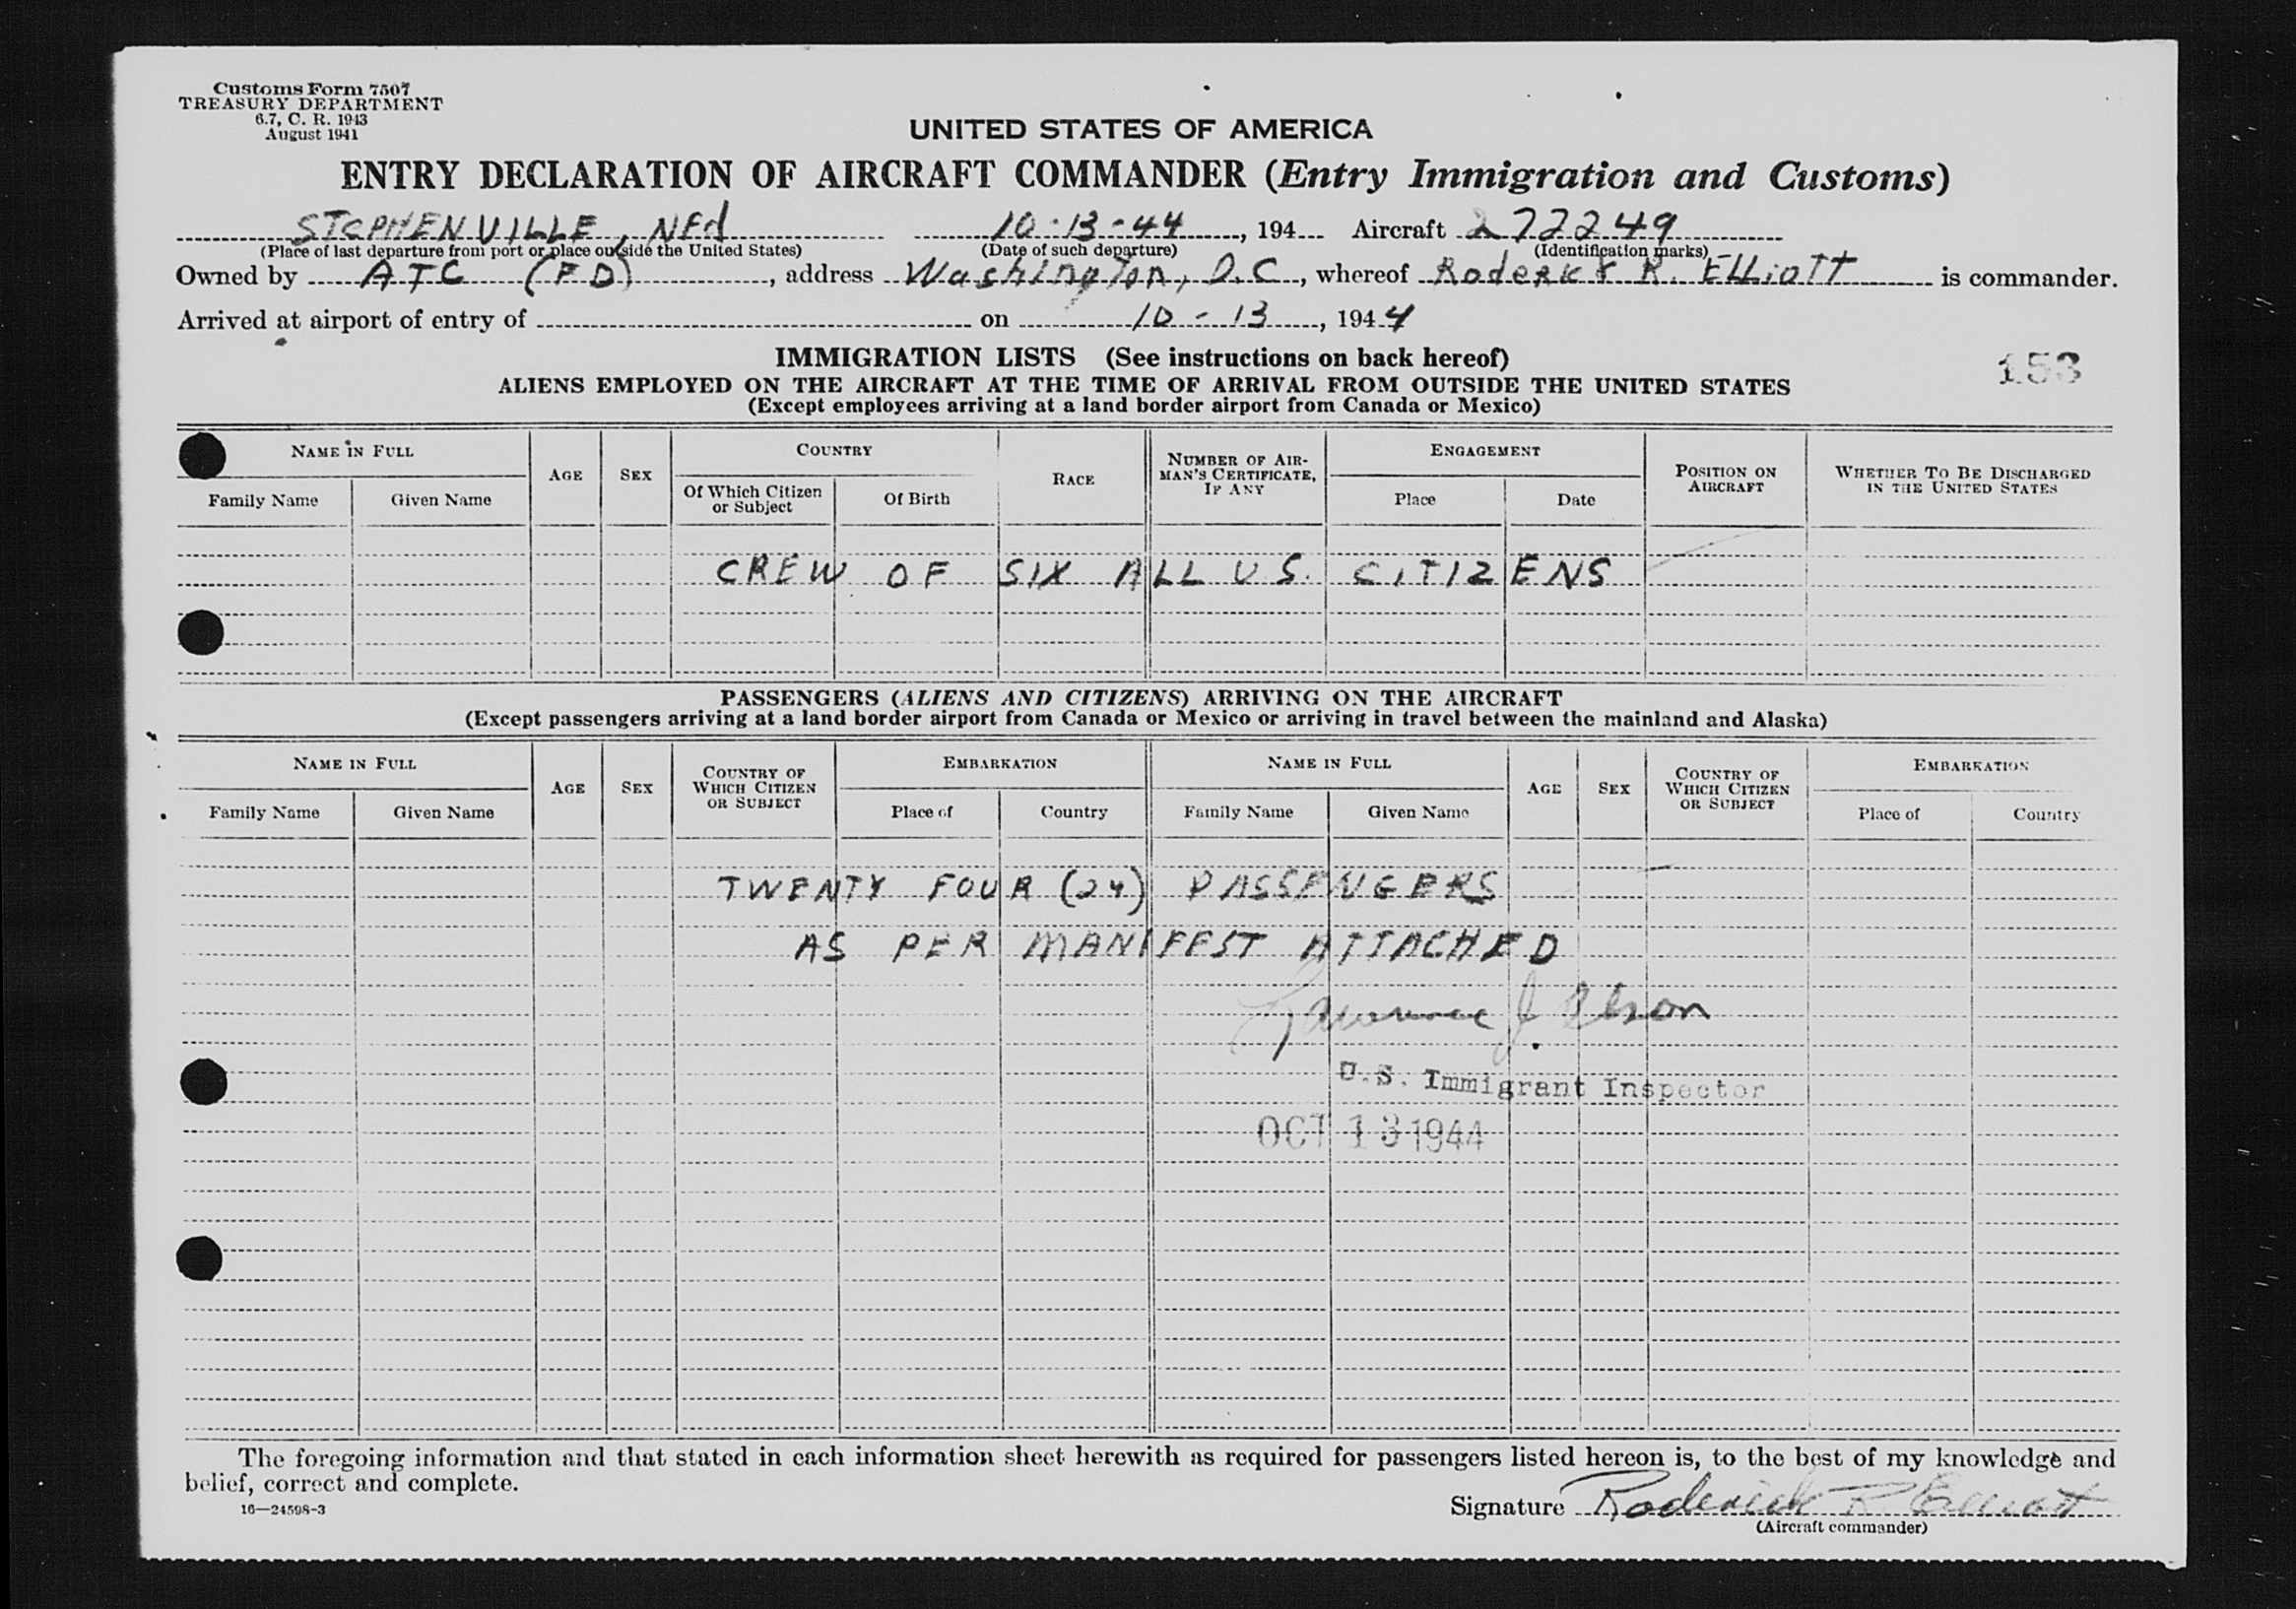 Customs Form 7507
TREASURY DEPARTMENT
6.7, C. R. 1943
August 1941
UNITED STATES OF AMERICA
ENTRY DECLARATION OF AIRCRAFT COMMANDER (Entry Immigration and Customs)
STEPHENVILLE, NFd 10-13-44, 194 Aircraft 272249
(Place of last departure from port or place outside the United States) (Date of such departure) (Identification marks)
Owned by ATC (FD), address Washington, D.C, whereof R. Elliott is commander.
Arrived at airport of entry of on 10-13, 1944
IMMIGRATION LISTS (See instructions on back hereof)
153
ALIENS EMPLOYED ON THE AIRCRAFT AT THE TIME OF ARRIVAL FROM OUTSIDE THE UNITED STATES
(Except employees arriving at a land border airport from Canada or Mexico)
NAME IN FULL AGE SEX COUNTRY RACE NUMBER OF AIRMAN'S CERTIFICATE, IF ANY ENGAGEMENT POSITION ON AIRCRAFT WHETHER TO BE DISCHARGED IN THE UNITED STATES
Family Name Given Name Of Which Citizen or Subject Of Birth Place Date
CREW OF SIX ALL US. CITIZENS
PASSENGERS (ALIENS AND CITIZENS) ARRIVING ON THE AIRCRAFT
(Except passengers arriving at a land border airport from Canada or Mexico or arriving in travel between the mainland and Alaska)
NAME IN FULL AGE SEX COUNTRY OF WHICH CITIZEN OR SUBJECT EMBARKATION NAME IN FULL AGE SEX COUNTRY OF WHICH CITIZEN OR SUBJECT EMBARKATION
Family Name Given Name Place of Country Family Name Given Name Place of Country
TWENTY FOUR (24) PASSENGERS
AS PER MANIFEST ATTACHED
Lawrence J.
U.S. Immigrant Inspector
OCT 13 1944
The foregoing information and that stated in each information sheet herewith as required for passengers listed hereon is, to the best of my knowledge and
belief, correct and complete.
16—24598-3
Signature Roderick R Elliott
(Aircraft commander)